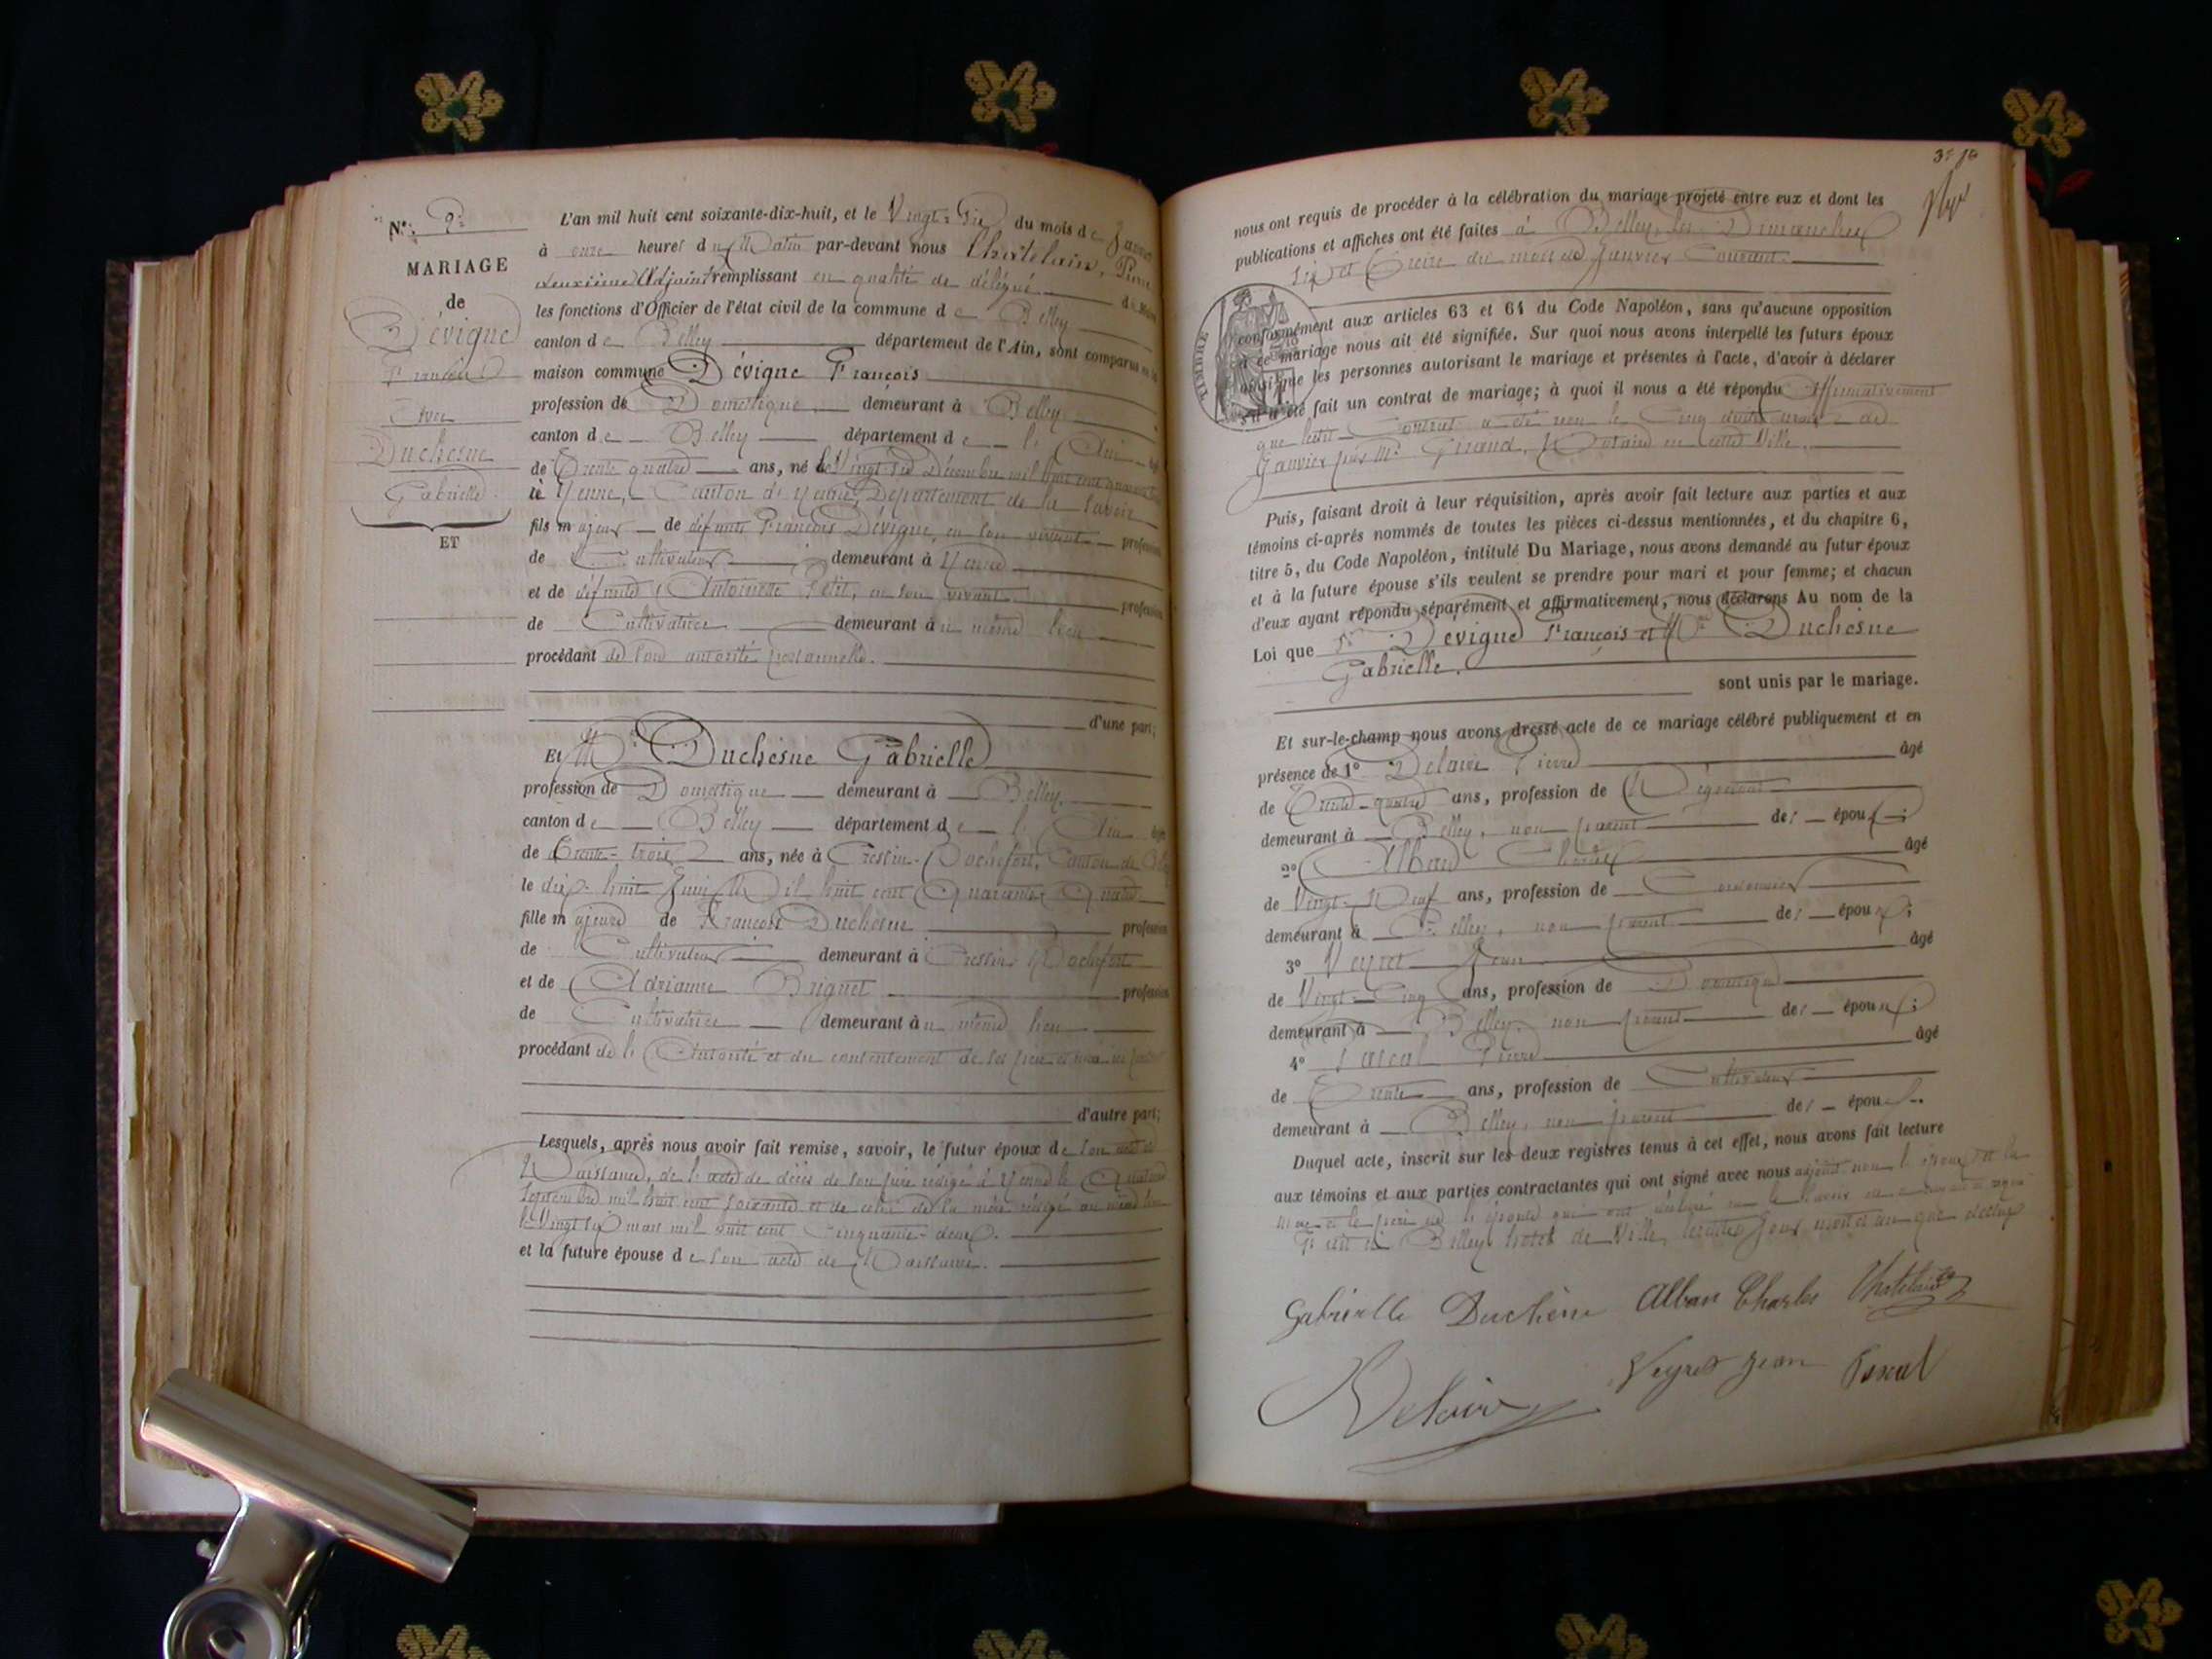 N°: 9
MARIAGE
de
Dévigne
François
Avec
Duchesne
Gabrielle.
ET
L'an mil huit cent soixante-dix-huit, et le Vingt-Six du mois de Janvier
à onze heures du Matin par-devant nous Chatelain, Pierre
deuxième Adjoint remplissant en qualité de délégué du Maire
les fonctions d'Officier de l'état civil de la commune de Belley
canton de Belley département de l'Ain, sont comparus en la
maison commune Dévigne François
profession de Domestique demeurant à Belley
canton de Belley département de l' Ain
de Trente quatre ans, né le Vingt-six Décembre mil huit cent quarante
à Yenne, Canton de Yenne, Département de la Savoie
fils majeur de défunt François Dévigne, en son vivant profession
de Cultivateur demeurant à Yenne
et de défunte Antoinette Petit, en son vivant profession
de Cultivatrice demeurant au même lieu
procédant de son autorité personnelle.
d'une part;
Et Mlle Duchesne Gabrielle
profession de Domestique demeurant à Belley,
canton de Belley département de l' Ain
de Trente-trois ans, née à Cressin-Rochefort, Canton de
le dix-huit Juin Mil huit cent Quarante-Quatre
fille majeure de François Duchesne profession
de Cultivateur demeurant à Cressin-Rochefort
et de Adrianne Briguet profession
de Cultivatrice demeurant au même lieu
procédant de l'Autorité et du consentement de ses père et mère
d'autre part;
Lesquels, après nous avoir fait remise, savoir, le futur époux de son acte de
Naissance, de l'acte de décès de son père rédigé à Yenne le Quatorze
Septembre mil huit cent soixante et de celui de sa mère rédigé au même lieu
le Vingt six mars mil huit cent Cinquante-deux.
et la future épouse de son acte de Naissance.
nous ont requis de procéder à la célébration du mariage projeté entre eux et dont les
publications et affiches ont été faites à Belley, les Dimanches
Six et Treize du mois de Janvier Courant.
TIMBRE
conformément aux articles 63 et 64 du Code Napoléon, sans qu'aucune opposition
à ce mariage nous ait été signifiée. Sur quoi nous avons interpellé les futurs époux
ainsi que les personnes autorisant le mariage et présentes à l'acte, d'avoir à déclarer
s'il a été fait un contrat de mariage; à quoi il nous a été répondu Affirmativement
que ledit Contrat a été reçu le Cinq dudit mois de
Janvier par Me Notaire en cette Ville.
Puis, faisant droit à leur réquisition, après avoir fait lecture aux parties et aux
témoins ci-après nommés de toutes les pièces ci-dessus mentionnées, et du chapitre 6,
titre 5, du Code Napoléon, intitulé Du Mariage, nous avons demandé au futur époux
et à la future épouse s'ils veulent se prendre pour mari et pour femme; et chacun
d'eux ayant répondu séparément et affirmativement, nous déclarons Au nom de la
Loi que Sr Dévigne François et Mlle Duchesne
Gabrielle.
sont unis par le mariage.
Et sur-le-champ nous avons dressé acte de ce mariage célébré publiquement et en
présence de 1° Delaire Pierre âgé
de Trente-quatre ans, profession de Négociant
demeurant à Belley, non parent des époux;
2° Alban Charles âgé
de Vingt-Neuf ans, profession de Cordonnier
demeurant à Belley, non parent des époux;
3° Veyret Jean âgé
de Vingt-Cinq ans, profession de Domestique
demeurant à Belley, non parent des époux;
4° Pascal Pierre âgé
de Trente ans, profession de Cultivateur
demeurant à Belley, non parent des époux.
Duquel acte, inscrit sur les deux registres tenus à cet effet, nous avons fait lecture
aux témoins et aux parties contractantes qui ont signé avec nous adjoint non l'époux et la
mère et le père de l'épouse qui ont déclaré ne le savoir
Fait à Belley hotel de Ville, lesdits jour, mois et an que dessus
Gabrielle Duchêne Alban Charles Chatelain
Delaire Veyret Jean Pascal